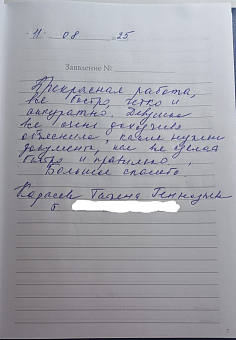 11 08 25
Заявление №
Прекрасная работа,
все быстро, четко и
аккуратно. Девушка
все очень доходчиво
объяснила, какие нужны
документы, как все сделать
быстро и правильно.
Большое спасибо.
Карасева Галина Геннадьевна
г.